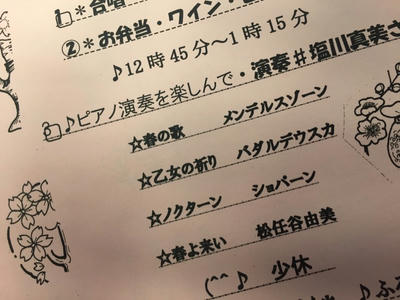 ＊合唱
②＊お弁当・ワイン・
♪１２時４５分～１時１５分
♪ピアノ演奏を楽しんで・演奏♯塩川真美さ
☆春の歌　メンデルスゾーン
☆乙女の祈り　バダルデウスカ
☆ノクターン　ショパーン
☆春よ来い　松任谷由美
(^^♪　少休
♪ふる